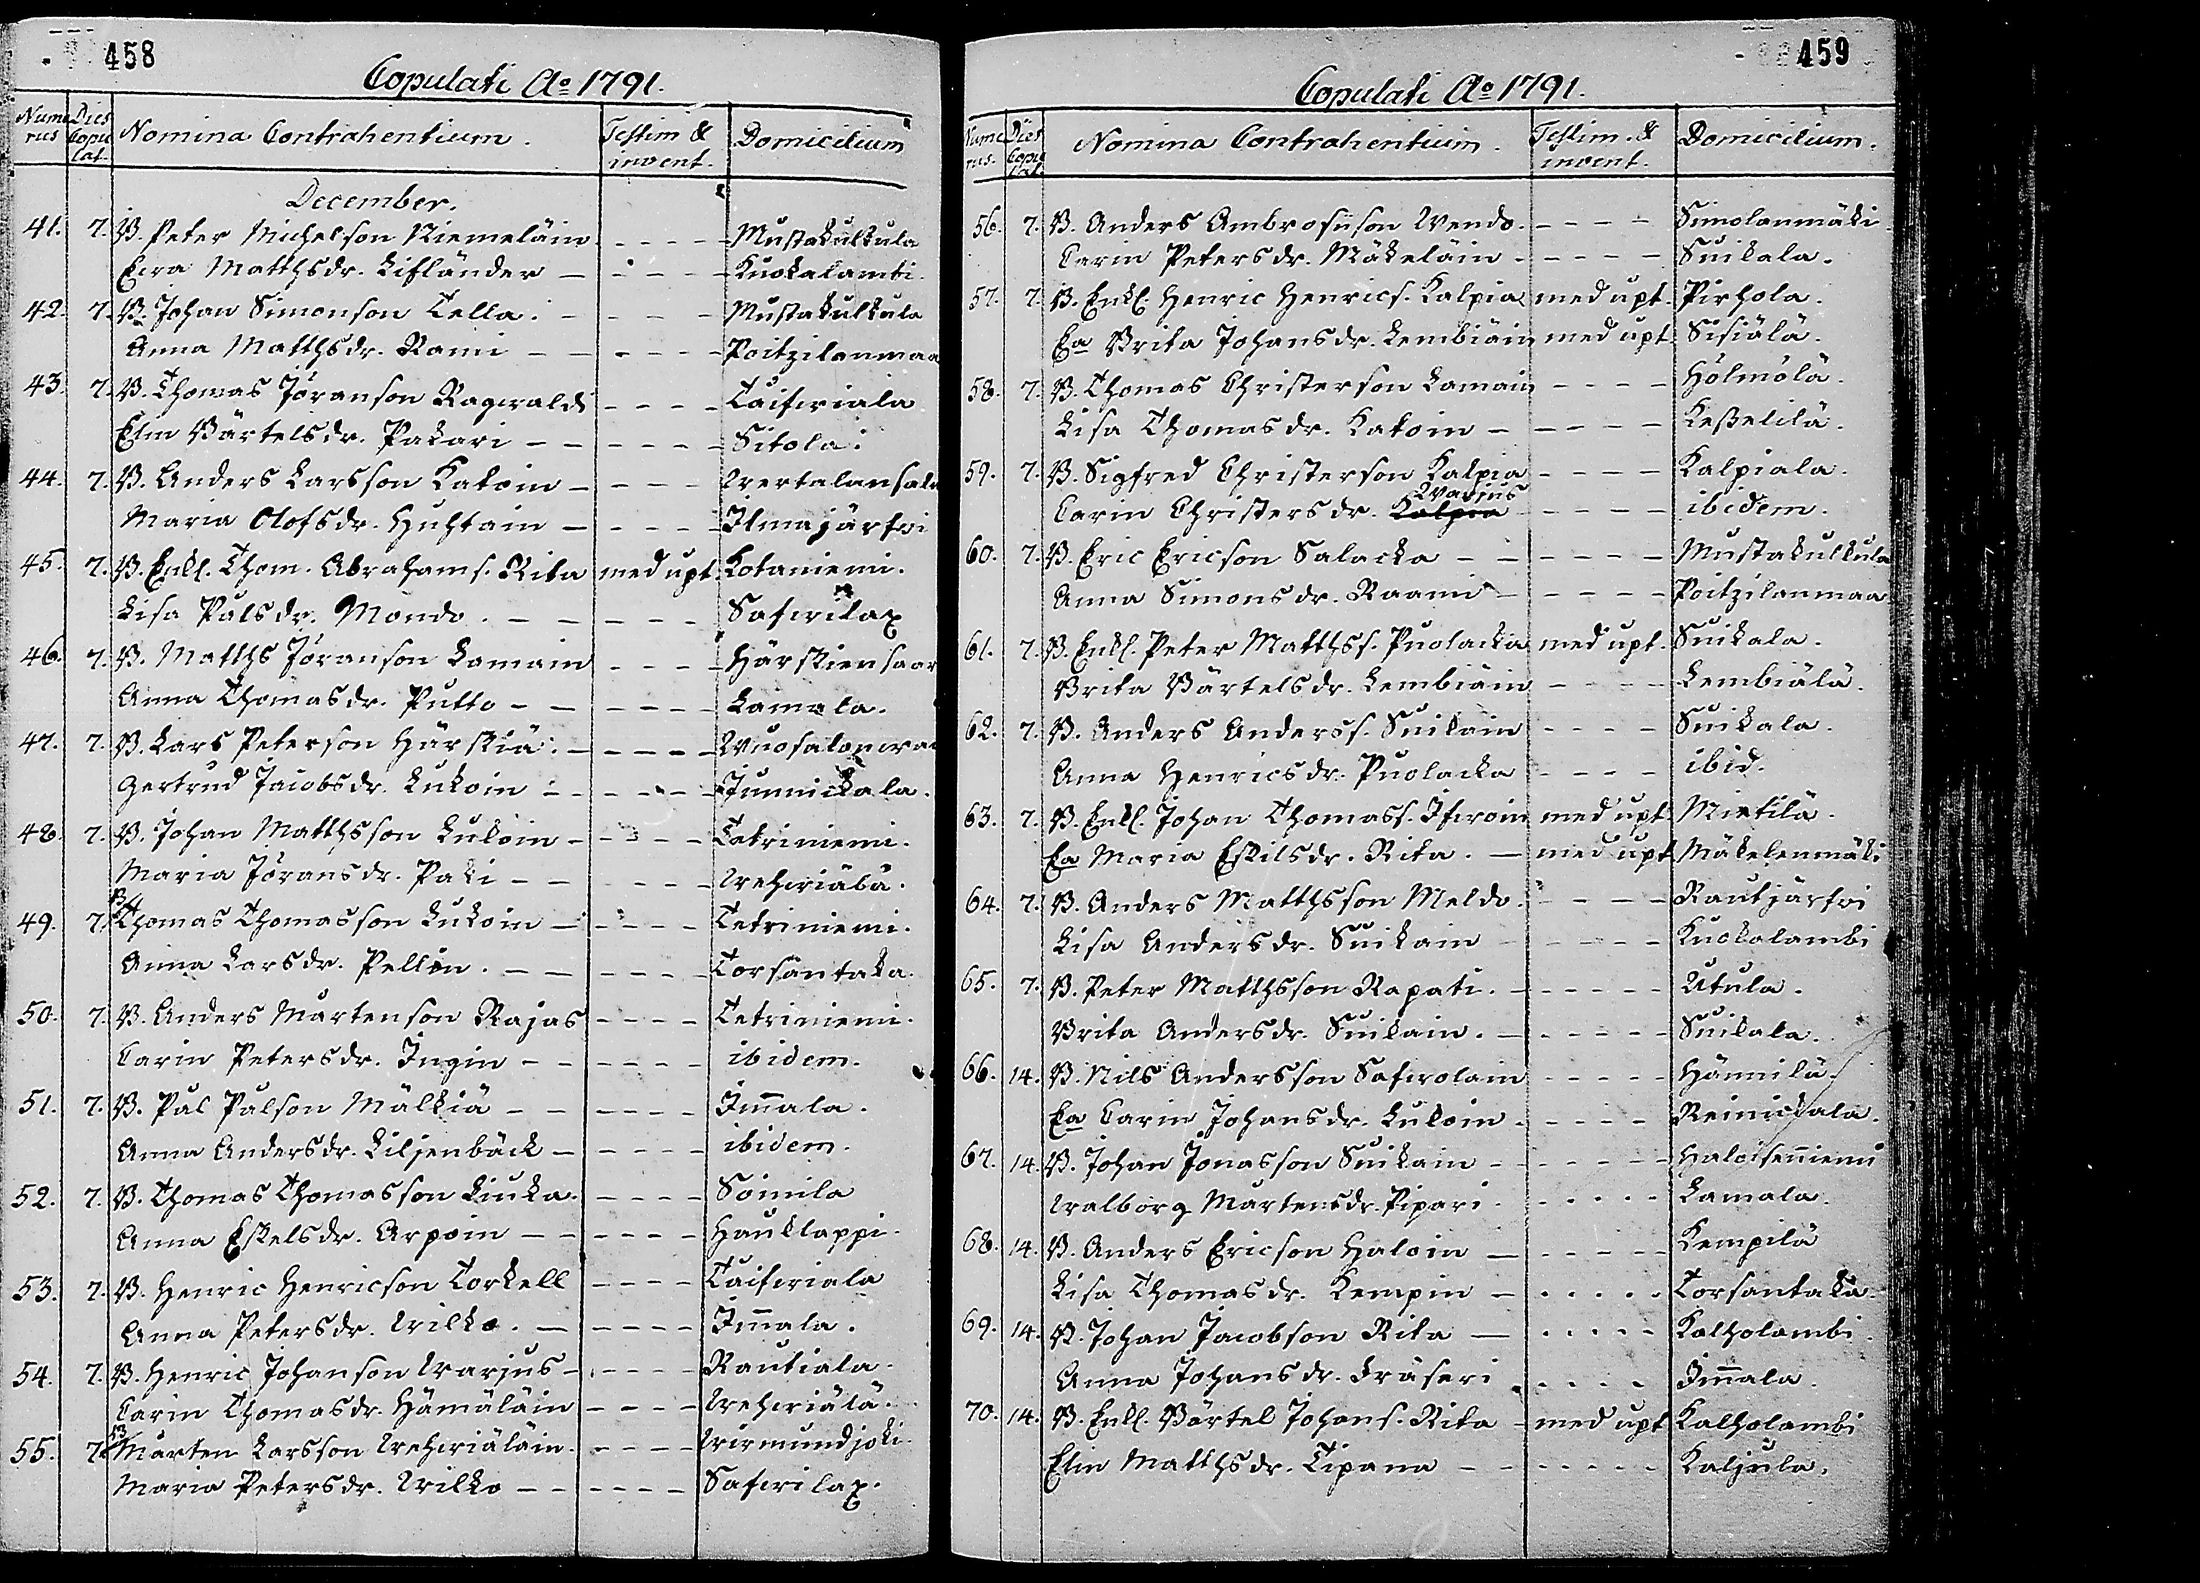 458
Copulati Ao 1791.
Nume rus Dies Copu lat. Nomina Contrahentium. Testim & invent. Domicilium
December.
41. 7. B. Peter Michelson Niemeläin - - - - Mustakulkula
Ewa Matthsdr. Lifländer - - - - Kuokalambi.
42. 7. B. Johan Simonson Tella. - - - - Mustakulkula
Anna Matthsdr. Rami - - - - Poitzilanmaa
43. 7. B. Thomas Jöranson Ragwaldi - - - - Taifwiala
Elin Bärtelsdr. Pakari - - - - Sitola.
44. 7. B. Anders Larsson Katoin - - - - Wertalansala
Maria Olofsdr. Huhtain - - - - Ilmajärfwi
45. 7. B. Enkl. Thom. Abrahams. Rita med upt. Kotaniemi.
Lisa Pålsdr. Mondo. - - - - Safwilax
46. 7. B. Matths Jöranson Lamain - - - - Härskiensaar
Anna Thomasdr. Putto - - - - Lamala.
47. 7. B. Lars Peterson Härskiä. - - - -
Gertrud Jacobsdr. Lukoin - - - - Junnickala.
48. 7. B. Johan Matthsson Lukoin - - - - Tetriniemi.
Maria Jöransdr. Paki - - - - Wehwiälä.
49. 7. B. Thomas Thomasson Lukoin - - - - Tetriniemi.
Anna Larsdr. Pellin. - - - - Torsantaka.
50. 7. B. Anders Mårtenson Rajas - - - - Tetriniemi.
Carin Petersdr. Ingin - - - - ibidem.
51. 7. B. Pål Pålson Mälkiä - - - - Im̄ala.
Anna Andersdr. Liljenbäck - - - - ibidem.
52. 7. B. Thomas Thomasson Liuka. - - - - Soimila
Anna Eskelsdr. Arpoin - - - - Hauklappi.
53. 7. B. Henric Henricson Torkell - - - - Taifwiala
Anna Petersdr. Wilko. - - - - Im̄ala.
54. 7. B. Henric Johanson Warjus - - - - Rautiala.
Carin Thomasdr. Hämäläin - - - - Wehwiälä.
55. 7. B. Mårten Larsson Wehwiäläin. - - - - Wirmundjoki.
Maria Petersdr. Wilko - - - - Safwilax.
459
Copulati Ao 1791.
Nume rus. Dies Copu lat. Nomina Contrahentium. Testim. & invent. Domicilium.
56. 7. B. Anders Ambrosiison Wendo. - - - - Simolanmäki.
Carin Petersdr. Mäkeläin - - - - Suikala.
57. 7. B. Enkl. Henric Henrics. Kalpia med upt. Pirhola.
Ea Brita Johansdr. Lembiäin med upt. Sisiälä.
58. 7. B. Thomas Christerson Lamain - - - - Hölmölä.
Lisa Thomasdr. Katoin - - - - Keßelilä.
59. 7. B. Sigfred Christerson Kalpia - - - - Kalpiala.
Carin Christersdr. Kalpia Warjus - - - - ibidem.
60. 7. B. Eric Ericson Salacka - - - - Mustakulkula
Anna Simonsdr. Raami - - - - Poitzilanmaa
61. 7. B. Enkl. Peter Matthss. Puolacka med upt. Suikala.
Brita Bärtelsdr. Lembiäin - - - - Lembiälä.
62. 7. B. Anders Anderss. Suikain - - - - Suikala.
Anna Henricsdr. Puolacka - - - - ibid.
63. 7. B. Enkl. Johan Thomass. Ifwoin med upt. Mietilä.
Ea Maria Eskilsdr. Rita. - med upt Mäkelenmäki
64. 7. B. Anders Matthsson Meldo. - - - - Rautjärfwi
Lisa Andersdr. Suikain - - - - Kuokalambi
65. 7. B. Peter Matthsson Rapati. - - - - Utula.
Brita Andersdr. Suikain. - - - - Suikala.
66. 14. B. Nils Andersson Safwolain - - - - Hännilä.
Ea Carin Johansdr. Lukoin. - - - - Reinickala.
67. 14. B. Johan Jonasson Suikain - - - - Haloisen̄iemi
Walborg Mårtensdr. Pipari. - - - - Lamala.
68. 14. B. Anders Ericson Haloin - - - - Kempilä
Lisa Thomasdr. Kempin - - - - Torsantaka.
69. 14. B. Johan Jacobson Rita - - - - Kalholambi.
Anna Johansdr. Fräseri - - - - Im̄ala.
70. 14. B. Enkl. Bärtel Johans. Rita - med upt Kalholambi
Elin Matthsdr. Tipana - - - - Kaljula.